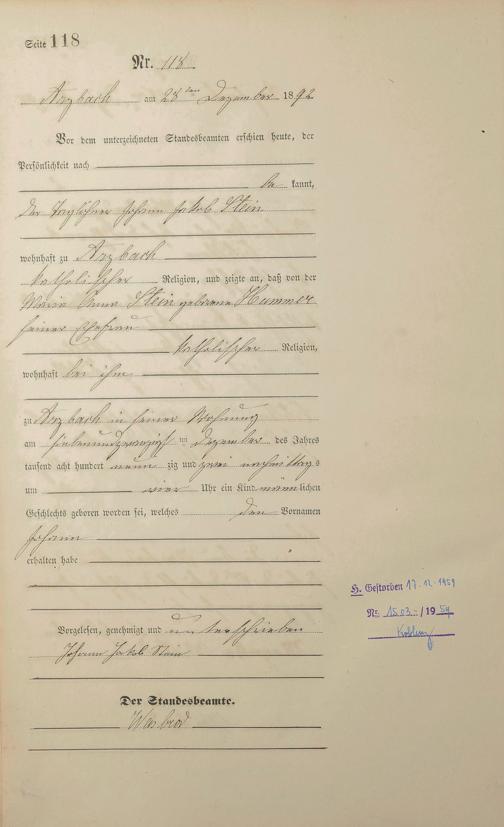 Seite 118
Nr. 118
Arzbach am 28 ten Dezember 1892
Vor dem unterzeichneten Standesbeamten erschien heute, der
Persönlichkeit nach
be kannt,
der Taglöhner Johann Jakob Stein
wohnhaft zu Arzbach
katholischer Religion, und zeigte an, daß von der
Maria Anna Stein geborene Hummer
seiner Ehefrau
katholischer Religion,
wohnhaft bei ihm
zu Arzbach in seiner Wohnung
am siebenundzwanzigsten Dezember des Jahres
tausend acht hundert neun zig und zwei nachmittags
um vier Uhr ein Kind männlichen
Geschlechts geboren worden sei, welches den Vornamen
Johann
erhalten habe
Vorgelesen, genehmigt und unterschrieben
Johann Jakob Stein
Der Standesbeamte.
H. Gestorben 17.12.1959
Nr. 1503 /19 59
Koblenz